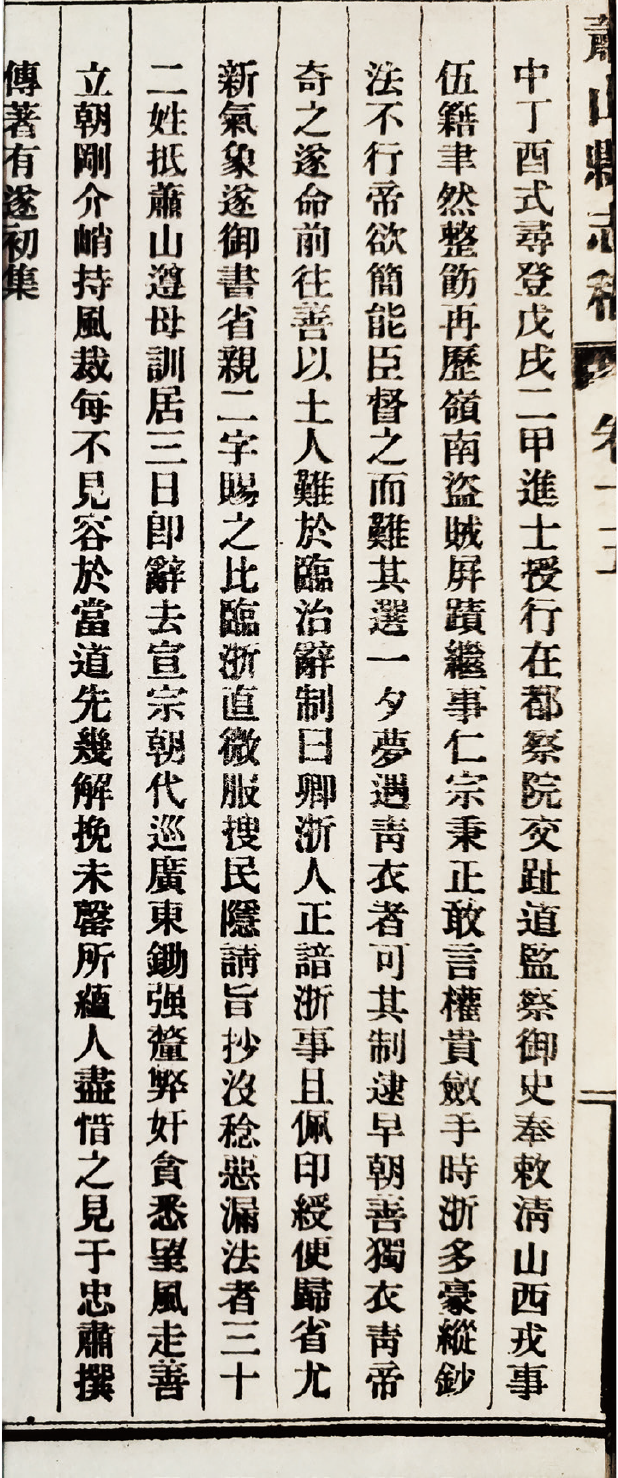 蕭山縣志稿 卷十五
中丁酉式尋登戊戌二甲進士授行在都察院交趾道監察御史奉敕淸山西戎事
伍籍聿然整飭再歷嶺南盜賊屏蹟繼事仁宗秉正敢言權貴斂手時浙多豪縱鈔
法不行帝欲簡能臣督之而難其選一夕夢遇靑衣者可其制逮早朝善獨衣靑帝
奇之遂命前往善以土人難於臨治辭制曰卿浙人正諳浙事且佩印綬便歸省尤
新氣象遂御書省親二字賜之比臨浙直微服搜民隱請旨抄沒稔惡漏法者三十
二姓抵蕭山遵母訓居三日卽辭去宣宗朝代巡廣東鋤强釐弊奸貪悉望風走善
立朝剛介峭持風裁每不見容於當道先幾解挽未罄所蘊人盡惜之見于忠肅撰
傳著有遂初集